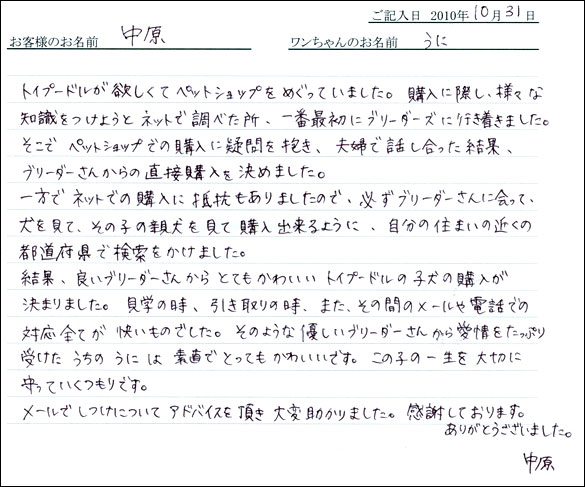 ご記入日 2010年 10月 31日
お客様のお名前 中原 ワンちゃんのお名前 うに
トイプードルが欲しくてペットショップをめぐっていました。購入に際し、様々な
知識をつけようとネットで調べた所、一番最初にブリーダーズに行き着きました。
そこでペットショップでの購入に疑問を抱き、夫婦で話し合った結果、
ブリーダーさんからの直接購入を決めました。
一方でネットでの購入に抵抗もありましたので、必ずブリーダーさんに会って、
犬を見て、その子の親犬を見て購入出来るように、自分の住まいの近くの
都道府県で検索をかけました。
結果、良いブリーダーさんからとてもかわいいトイプードルの子犬の購入が
決まりました。見学の時、引き取りの時、また、その間のメールや電話での
対応全てが快いものでした。そのような優しいブリーダーさんから愛情をたっぷり
受けたうちのうには素直でとってもかわいいです。この子の一生を大切に
守っていくつもりです。
メールでしつけについてアドバイスを頂き大変助かりました。感謝しております。
ありがとうございました。
中原